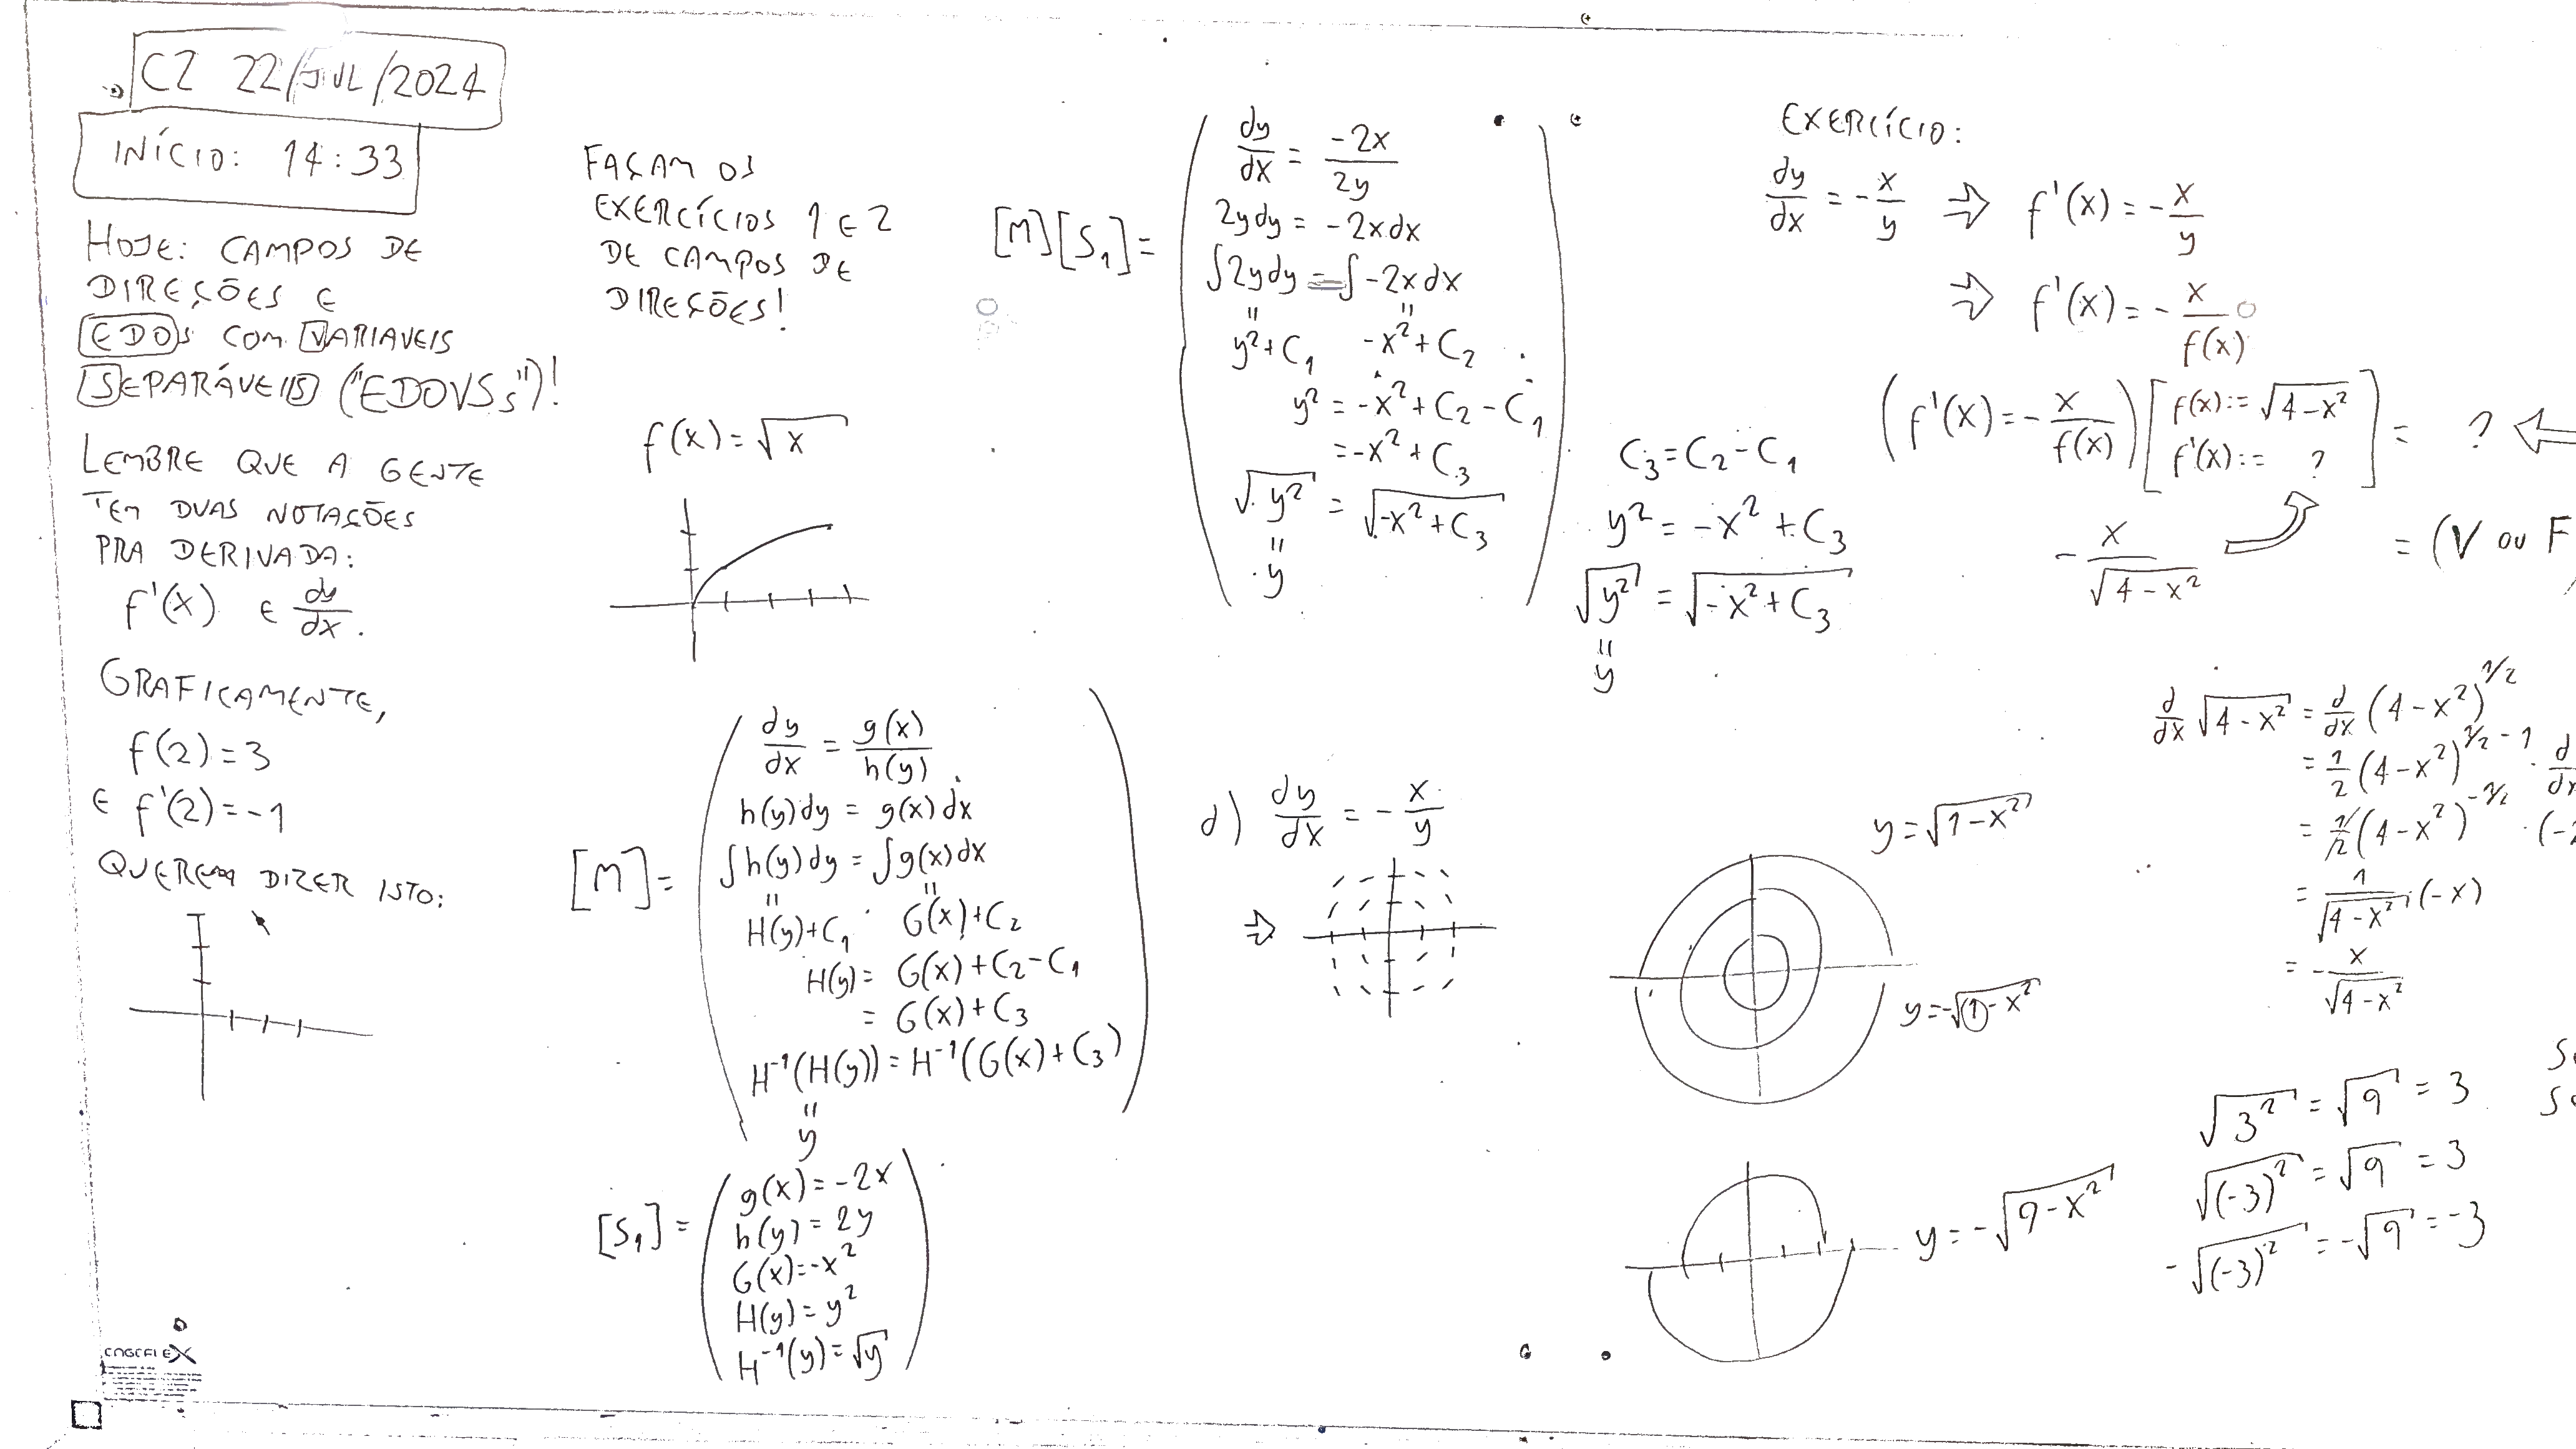 C2 22/JUL/2024
INÍCIO: 14:33
HOJE: CAMPOS DE
DIREÇÕES E
EDOS COM VARIAVEIS
SEPARÁVEIS ("EDOVSs")!
LEMBRE QUE A GENTE
TEM DUAS NOTAÇÕES
PRA DERIVADA:
f'(x) E dy/dx.
GRAFICAMENTE,
f(2)=3
E f'(2)=-1
QUEREM DIZER ISTO:
FAÇAM OS
EXERCÍCIOS 1 E 2
DE CAMPOS DE
DIREÇÕES!
f(x)=√x
[M]=
dy/dx = g(x)/h(y)
h(y)dy = g(x)dx
∫h(y)dy = ∫g(x)dx
" "
H(y)+C₁ G(x)+C₂
H(y) = G(x)+C₂-C₁
= G(x)+C₃
H⁻¹(H(y)) = H⁻¹(G(x)+C₃)
"
y
[S₁]=
g(x)=-2x
h(y)=2y
G(x)=-x²
H(y)=y²
H⁻¹(y)=√y
[M][S₁]=
dy/dx = -2x/2y
2ydy = -2xdx
∫2ydy = ∫-2xdx
" "
y²+C₁ -x²+C₂
y² = -x²+C₂-C₁
= -x²+C₃
√y² = √-x²+C₃
"
y
C₃=C₂-C₁
y² = -x²+C₃
√y² = √-x²+C₃
"
y
d) dy/dx = -x/y
⇒
y=√1-x²
y=-√1-x²
y=-√9-x²
EXERCÍCIO:
dy/dx = -x/y ⇒ f'(x) = -x/y
⇒ f'(x) = -x/f(x)
(f'(x) = -x/f(x)) [f(x):=√4-x²
f'(x):= ?] = ? ⇐
-x/√4-x²
= (V ou F
d/dx √4-x² = d/dx (4-x²)^1/2
= 1/2 (4-x²)^1/2-1 · d/dx
= 1/2 (4-x²)^-1/2 · (-2
= 1/√4-x² · (-x)
= -x/√4-x²
√3² = √9 = 3
√(-3)² = √9 = 3
-√(-3)² = -√9 = -3